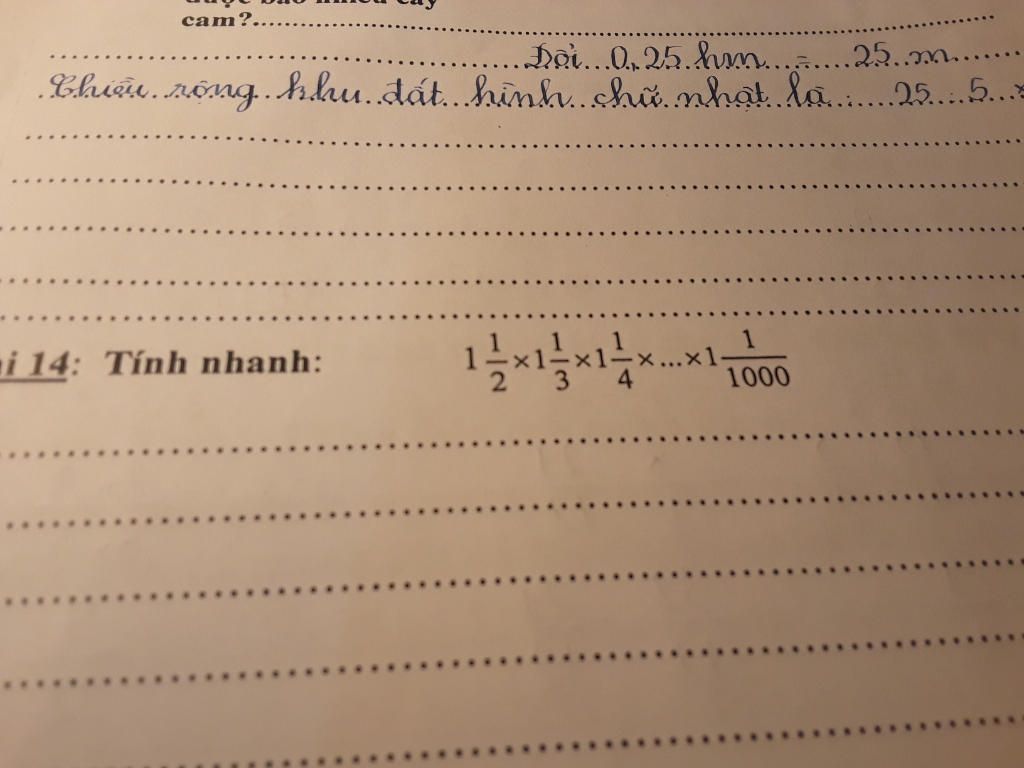 được bao nhiêu cây
cam?
Đổi 0,25 hm = 25 m
Chiều rộng khu đất hình chữ nhật là : 25 : 5 ×
i 14: Tính nhanh: 1 1/2 × 1 1/3 × 1 1/4 × ... × 1 1/1000